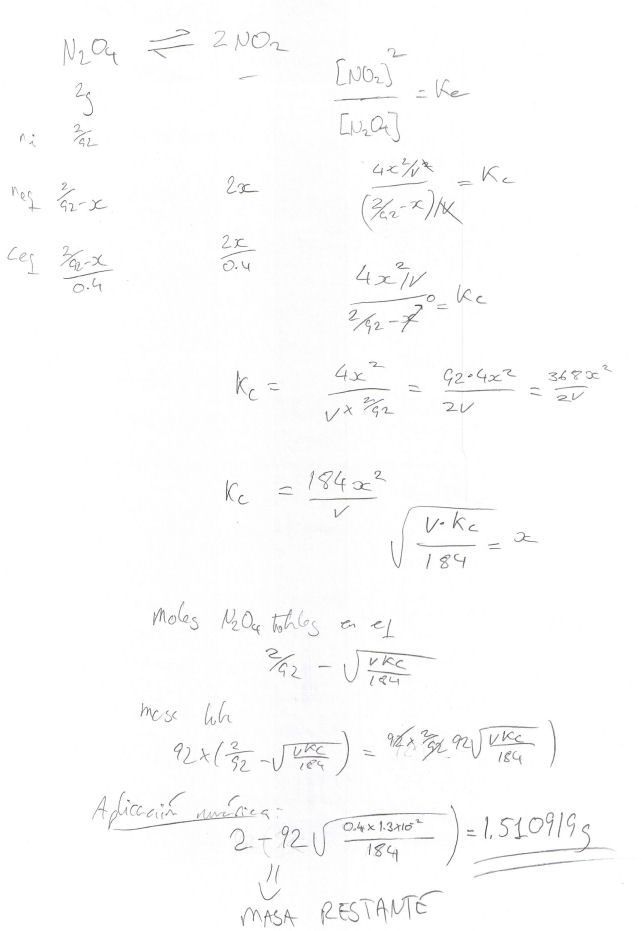 N₂O₄ ⇌ 2NO₂
2g –
[NO₂]² / [N₂O₄] = Kc
ni 2/92
neq 2/92-x 2x
(4x²/V²) / ((2/92-x)/V) = Kc
Ceq (2/92-x)/0.4 2x/0.4
(4x²/V) / (2/92-x→0) = Kc
Kc = 4x² / (V × 2/92) = 92·4x² / 2V = 368x² / 2V
Kc = 184x² / V
√(V·Kc / 184) = x
Moles N₂O₄ totales en eq
2/92 - √(VKc / 184)
masa
92×(2/92 - √(VKc / 184)) = 92×2/92 92√(VKc / 184))
Aplicación numérica:
2 - 92√(0.4×1.3×10⁻² / 184)) = 1.510919g
MASA RESTANTE